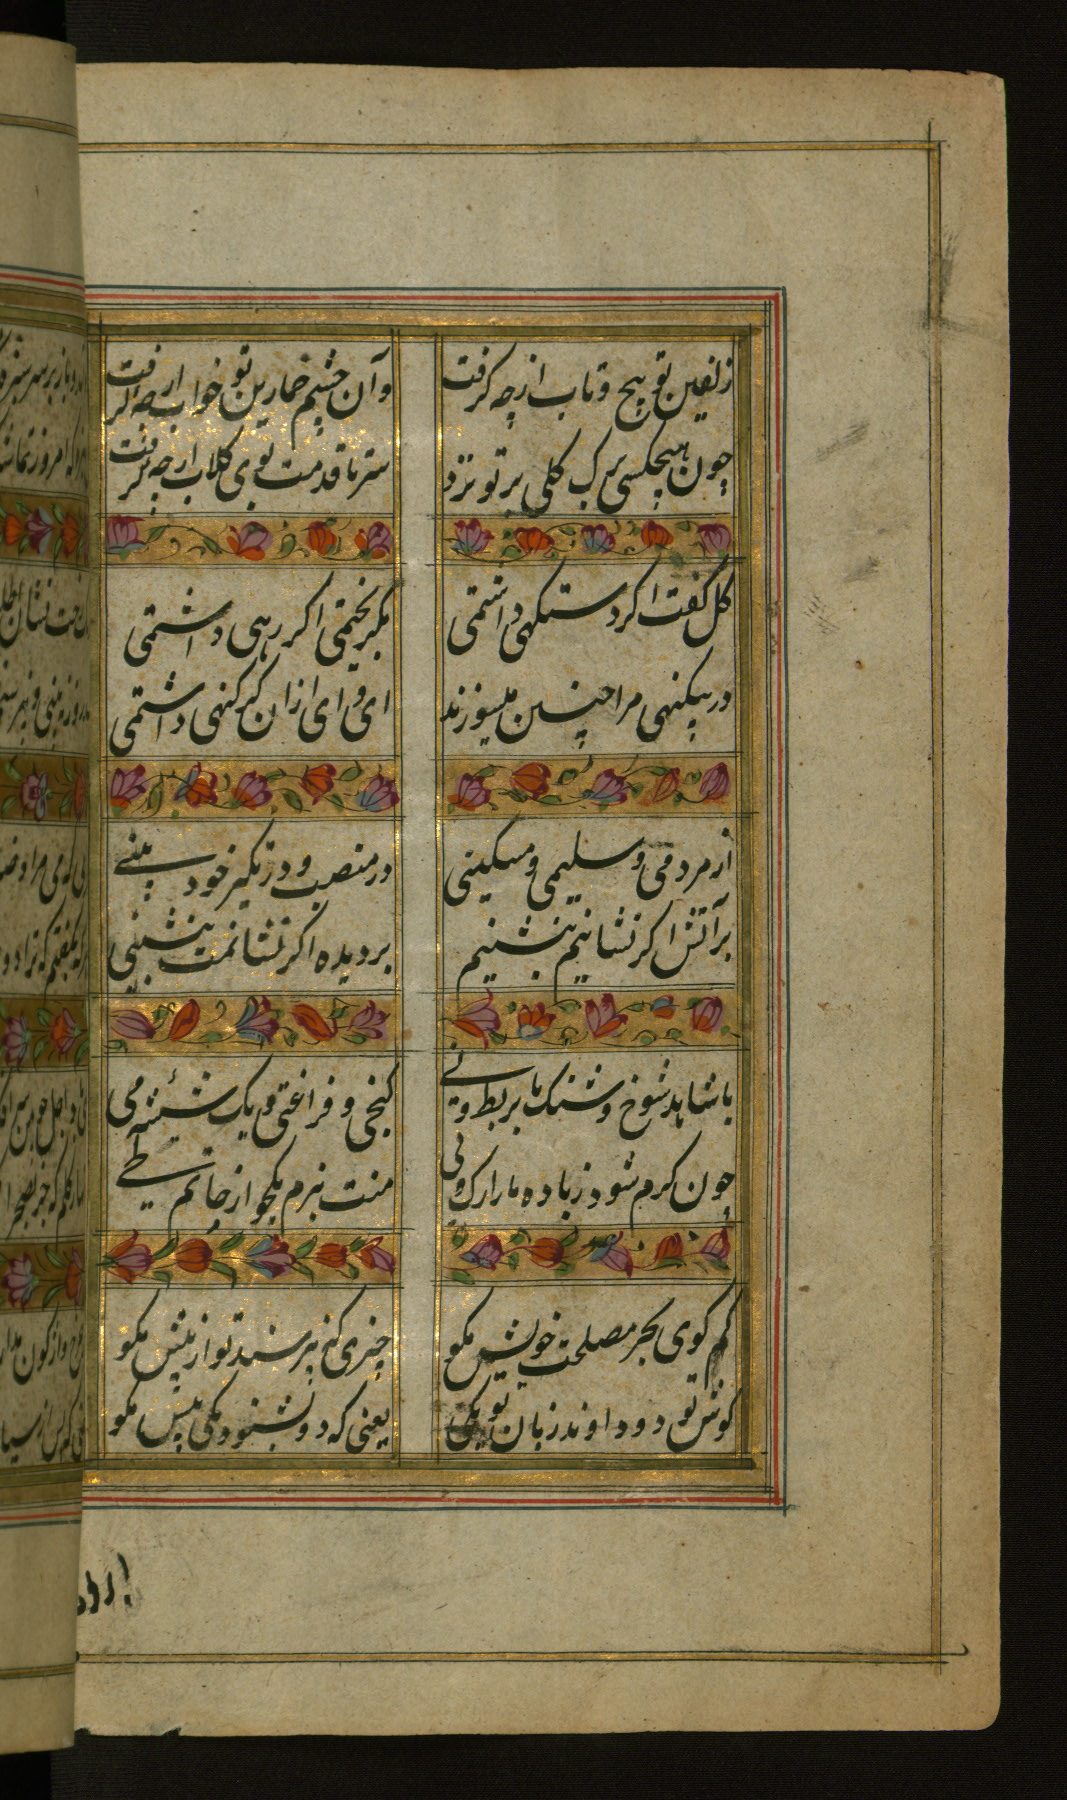 زلفین تو پیچ و تاب از چه گرفت
وآن چشم خمارین تو خواب از چه گرفت
چون هیچکسی برگ گلی بر تو نزد
سر تا قدمت بوی گلاب از چه گرفت
گل گفت اگر دستگهی داشتمی
بگریختمی اگر رهی داشتمی
در بیگنهی مرا چنین میسوزند
ای وای از آن گر گنهی داشتمی
از مردمی و سلیمی و مسکینی
در منصب و در تکبر خود بینی
بر آتش اگر نشانیم بنشینم
بر دیده اگر نشانمت ننشینی
با شاهد شوخ و شنگ با بربط و نی
کنجی و فراغتی و یک شیشه می
چون گرم شود ز باده ما را رگ و پی
منت نبرم بیکجو از حاتم طی
کم گوی بجز مصلحت خویش مگو
چیزی که نپرسند تو از پیش مگو
گوش تو دو دادند و زبان تو یکی
یعنی که دو بشنو و یکی بیش مگو